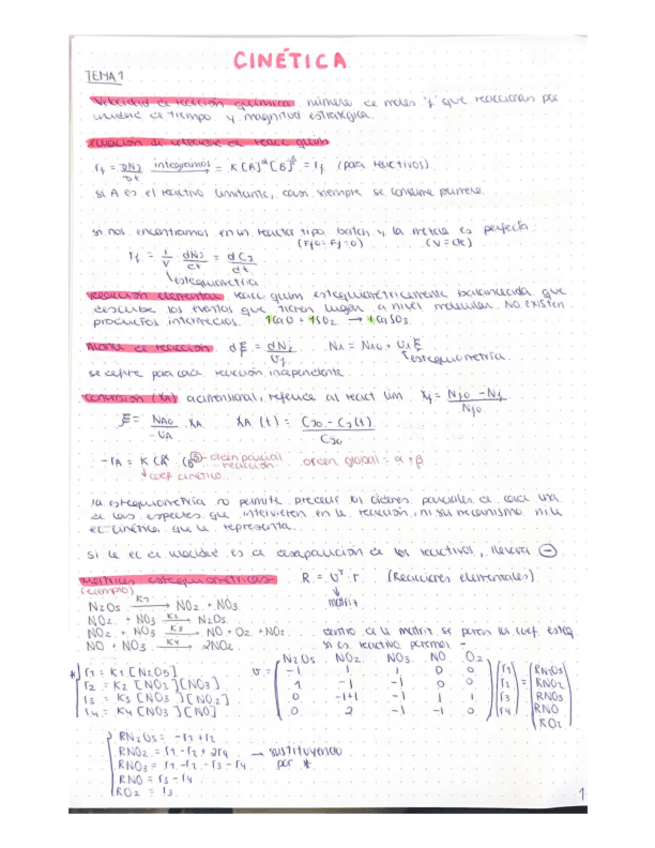 CINÉTICA
TEMA 1
Velocidad de reacción química número de moles "j" que reaccionan por
unidad de tiempo y magnitud extensiva.
ecuación de velocidad de reacc quim
rj = dNj/dt integramos = K [A]^α [B]^β = rj (para reactivos)
si A es el reactivo limitante, casi siempre se consume primero.
si nos encontramos en un reactor tipo batch y la mezcla es perfecta
(Fj0 = Fj = 0) (V = cte)
rj = 1/V dNj/dt = dCj/dt
estequiometría
Reacción elemental reacc quim estequiométricamente balanceada que
describe los eventos que tienen lugar a nivel molecular. NO existen
productos intermedios. 1CaO + 1SO2 → 1CaSO3
de reacción dξ = dNj/υj Ni = Ni0 + υi ξ
estequiometría
se define para cada reacción independiente
conversión (XA) adimensional, referida al react lim Xj = Nj0 - Nj / Nj0
ξ = NA0/-υA · XA XA (t) = Cj0 - Cj(t) / Cj0
-rA = K CA^α CB^β orden parcial reacción orden global = α + β
coef cinético
la estequiometría no permite predecir los órdenes parciales de cada una
de las especies que intervienen en la reacción, ni su mecanismo ni la
ec. cinética que la representa.
Si la ec de velocidad es de desaparición de los reactivos, llevará ⊖
Matrices estequiométricas R = υ^T · r (Reacciones elementales)
(ejemplo)
matriz
N2O5 K1→ NO2 + NO3
NO2 + NO3 K2→ N2O5
NO2 + NO3 K3→ NO + O2 + NO2
NO + NO3 K4→ 2NO2
dentro de la matriz se ponen los coef. esteq
si es reactivo ponemos -
N2O5 NO2 NO3 NO O2
* r1 = K1 [N2O5]
r2 = K2 [NO2][NO3]
r3 = K3 [NO3][NO2]
r4 = K4 [NO3][NO]
υ = -1 1 1 0 0 r1 RN2O5
1 -1 -1 0 0 r2 = RNO2
0 -1+1 -1 1 1 r3 RNO3
0 2 -1 -1 0 r4 RNO
RO2
RN2O5 = -r1 + r2
RNO2 = r1 - r2 + 2r4 → sustituyendo
RNO3 = r1 - r2 - r3 - r4 por *
RNO = r3 - r4
RO2 = r3
1